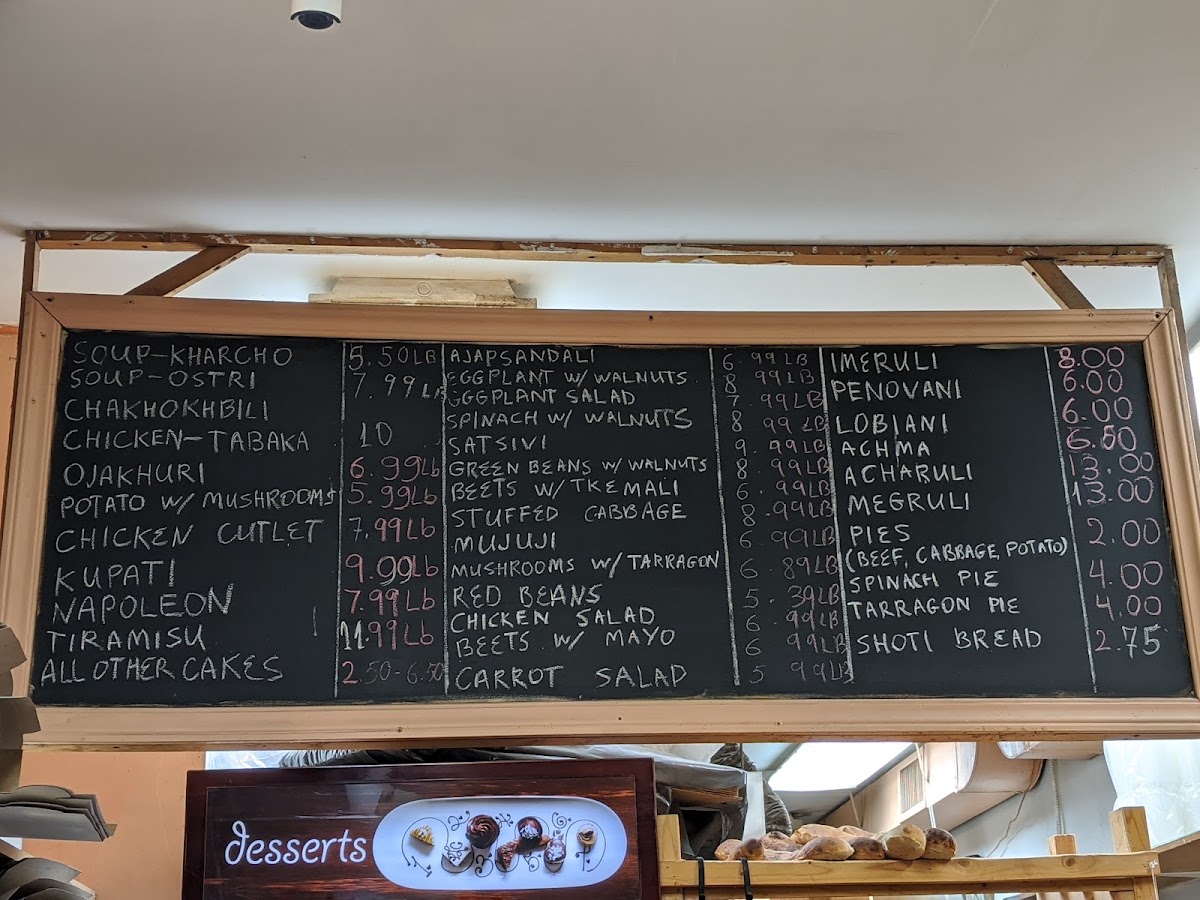 SOUP-KHARCHO 5.50LB
SOUP-OSTRI 7.99LB
CHAKHOKHBILI
CHICKEN-TABAKA 10
OJAKHURI 6.99Lb
POTATO W/ MUSHROOMS 5.99Lb
CHICKEN CUTLET 7.99Lb
KUPATI 9.99Lb
NAPOLEON 7.99Lb
TIRAMISU 11.99Lb
ALL OTHER CAKES 2.50-6.50
AJAPSANDALI 6.99LB
EGGPLANT W/ WALNUTS 8.99LB
EGGPLANT SALAD 7.99LB
SPINACH W/ WALNUTS 8.99LB
SATSIVI 9.99LB
GREEN BEANS W/ WALNUTS 8.99LB
BEETS W/ TKEMALI 6.99LB
STUFFED CABBAGE 8.99LB
MUJUJI 6.99LB
MUSHROOMS W/ TARRAGON 6.89LB
RED BEANS 5.39LB
CHICKEN SALAD 6.99LB
BEETS W/ MAYO 6.99LB
CARROT SALAD 5 99LB
IMERULI 8.00
PENOVANI 6.00
LOBIANI 6.00
ACHMA 6.50
ACHARULI 13.00
MEGRULI 13.00
PIES 2.00
(BEEF, CABBAGE, POTATO)
SPINACH PIE 4.00
TARRAGON PIE 4.00
SHOTI BREAD 2.75
desserts